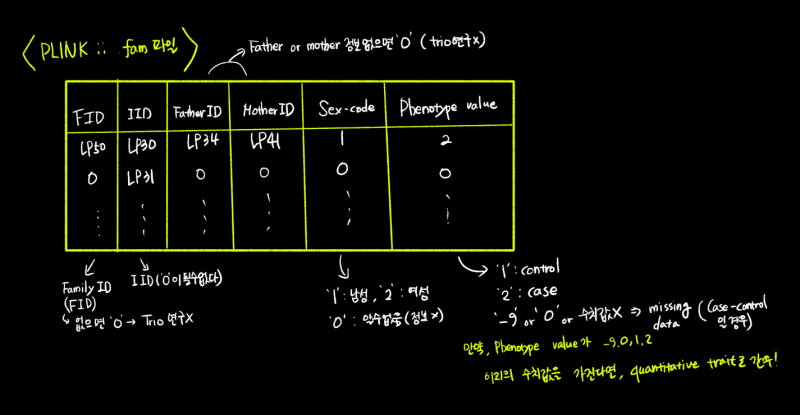 < PLINK :: .fam 파일 >
Father or mother 정보 없으면 '0' (trio연구X)
FID IID Father ID Mother ID Sex-code Phenotype value
LP50 LP30 LP34 LP41 1 2
0 LP31 0 0 0 0
Family ID
(FID)
없으면 '0' → Trio 연구X
IID ('0'이 될수없다)
'1': 남성, '2': 여성
'0': 알수없음 (정보 X)
'1': control
'2': case
'-9' or '0' or 수치값X ⇒ missing data (Case-control 인 경우)
만약, Phenotype value가 -9,0,1,2
이외의 수치값을 가진다면, quantitative trait로 간주!